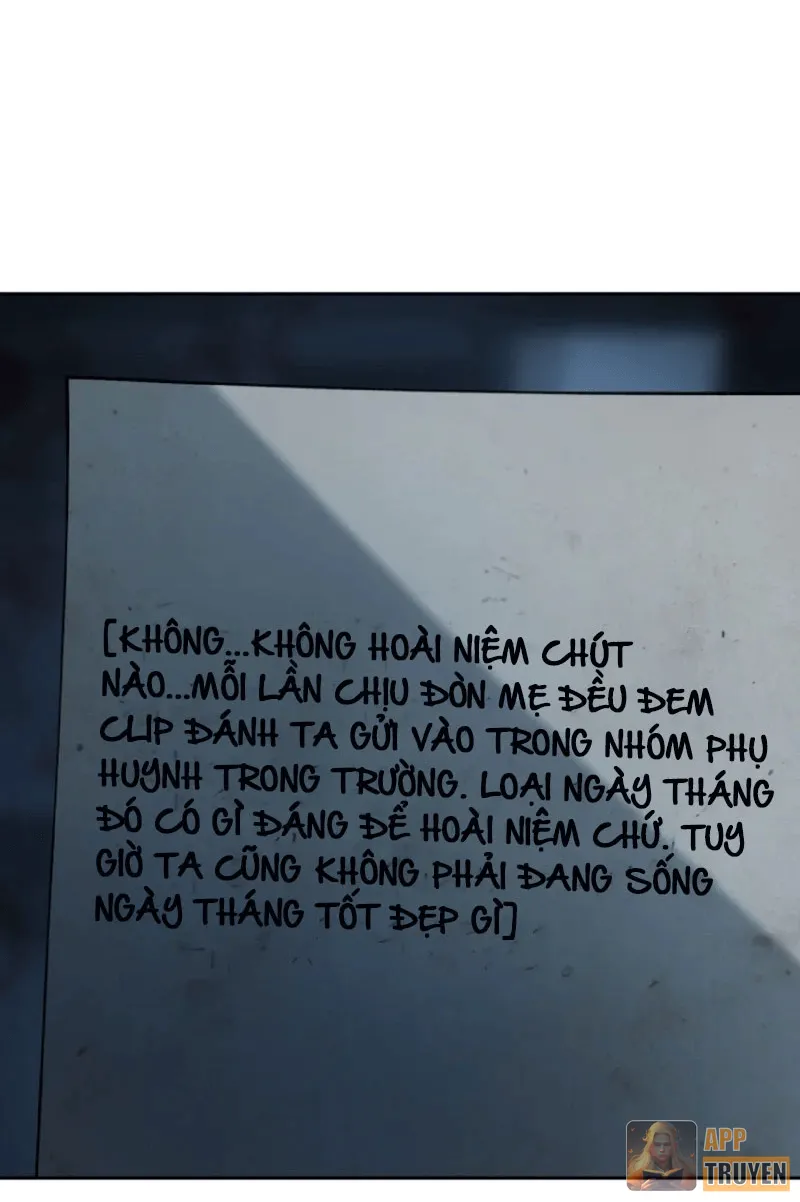 [KHÔNG...KHÔNG HOÀI NIỆM CHÚT
NÀO...MỖI LẦN CHỊU ĐÒN MẸ ĐỀU ĐEM
CLIP ĐÁNH TA GỬI VÀO TRONG NHÓM PHỤ
HUYNH TRONG TRƯỜNG. LOẠI NGÀY THÁNG
ĐÓ CÓ GÌ ĐÁNG ĐỂ HOÀI NIỆM CHỨ. TUY
GIỜ TA CŨNG KHÔNG PHẢI ĐANG SỐNG
NGÀY THÁNG TỐT ĐẸP GÌ]
APP
TRUYEN